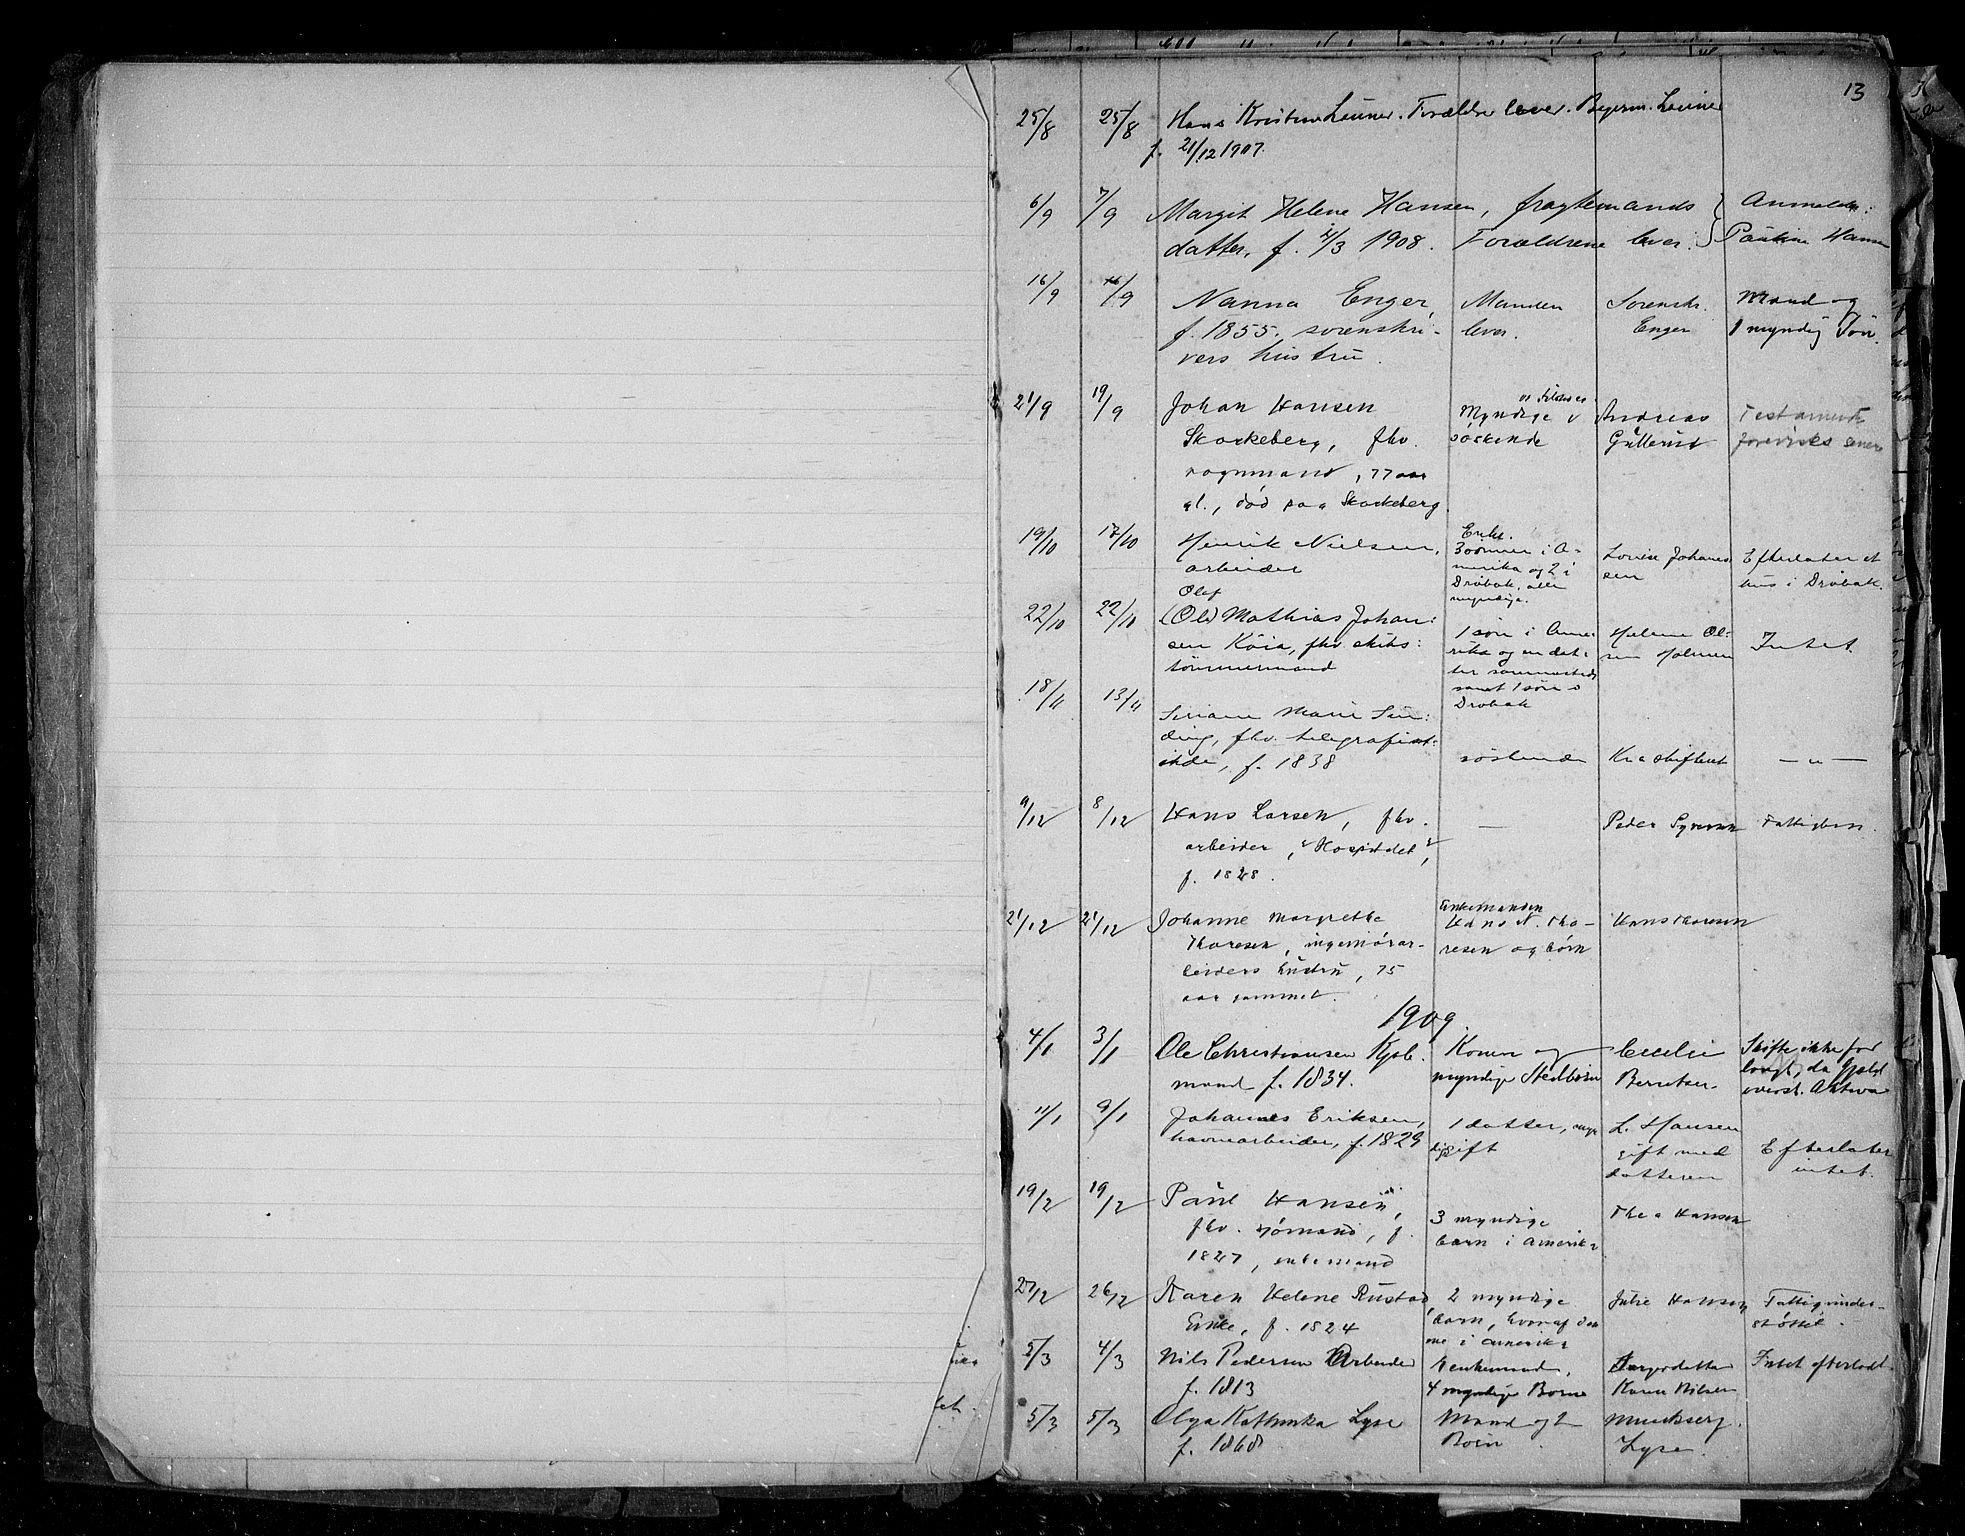 13
25/8 25/8 Hans Kristian Launer. Forældre lever. Bagerm. Launer
f. 21/12 1907.
6/9 7/9 Margit Helene Hansen, fragtemands } Anmeldt:
datter, f. 4/3 1908. Forældrene lever. Pauline Hansen
16/9 16/9 Nanna Enger, Manden Sorenskr. Mand og
f. 1855, sorenskri- lever. Enger 1 myndig Søn.
vers hustru.
21/9 19/9 Johan Hansen Myndige Andreas Testamente
Skorkeberg, fhv. søskende Gullerud forevises senere
vognmand, 77 aar
gl., død paa Skorkeberg.
19/10 17/10 Henrik Nielsen, Enke. 3 sønner i A- Louise Johannes- Efterlater et
arbeider merika og 2 i sen hus i Drøbak.
Drøbak, alle
myndige.
Olaf
22/10 22/10 (Ole) Mathias Johan- 1 søn i Ame- Helene Ol- Intet.
sen Kaia, fhv. skibs- rika og en dat- sen Holmen
tømmermand ter sammesteds
samt 1 søn i
Drøbak
18/11 13/11 Marie Sin-
ding, fhv. telegrafist-
inde, f. 1838 søskende Kra skifteret — " —
9/12 8/12 Hans Larsen, fhv. — Peder Syversen Fattiglem.
arbeider, "Hospitalet",
f. 1828.
21/12 21/12 Johanne Margrethe Enkemanden Hans Thoresen
Thoresen, ingeniørar- Hans N. Tho-
beiders hustru, 75 resen og børn
aar gammel.
1909.
4/1 3/1 Ole Christiansen Kjøb- Konen og Cecilie Skifte ikke for
mand f. 1834. myndige Stedbørn Berntsen. langt, da Gjæld
overst. Aktiva
11/1 9/1 Johannes Eriksen, 1 datter, myn- L. Hansen
havnearbeider, f. 1829 dig gift gift med Efterlater
datteren intet.
19/2 19/2 Paul Hansen, 3 myndige Thea Hansen
fhv. sjømand, f. barn i Amerika
1827, enkemand
27/2 26/2 Karen Helene Rustad, 2 myndige Julie Hansen Fattigunder-
Enke, f. 1824 barn, hvoraf den støttet.
ene i Amerika
5/3 4/3 Nils Pedersen Arbeider enkemand, Intet efterladt.
f. 1813 4 myndige Børn Karen Nilsen
5/3 5/3 Olga Kathinka Lyse Mand og 2
f. 1868 Børn. Lyse.